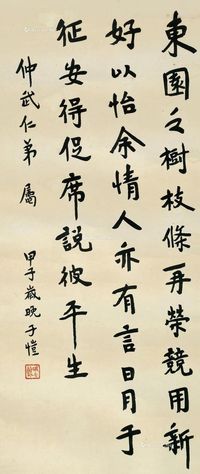 東園之樹枝條再榮競用新
好以怡余情人亦有言日月于
征安得促席說彼平生
仲武仁弟 屬
甲子歲晚子愷